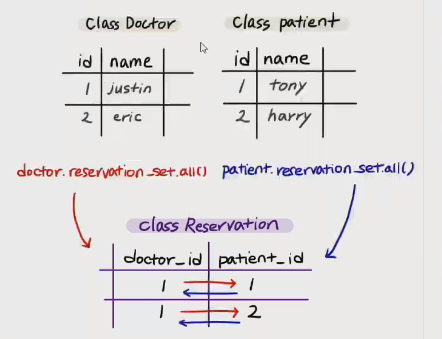 Class Doctor
id name
1 justin
2 eric
Class patient
id name
1 tony
2 harry
doctor.reservation_set.all()
patient.reservation_set.all()
class Reservation
doctor_id patient_id
1 1
1 2